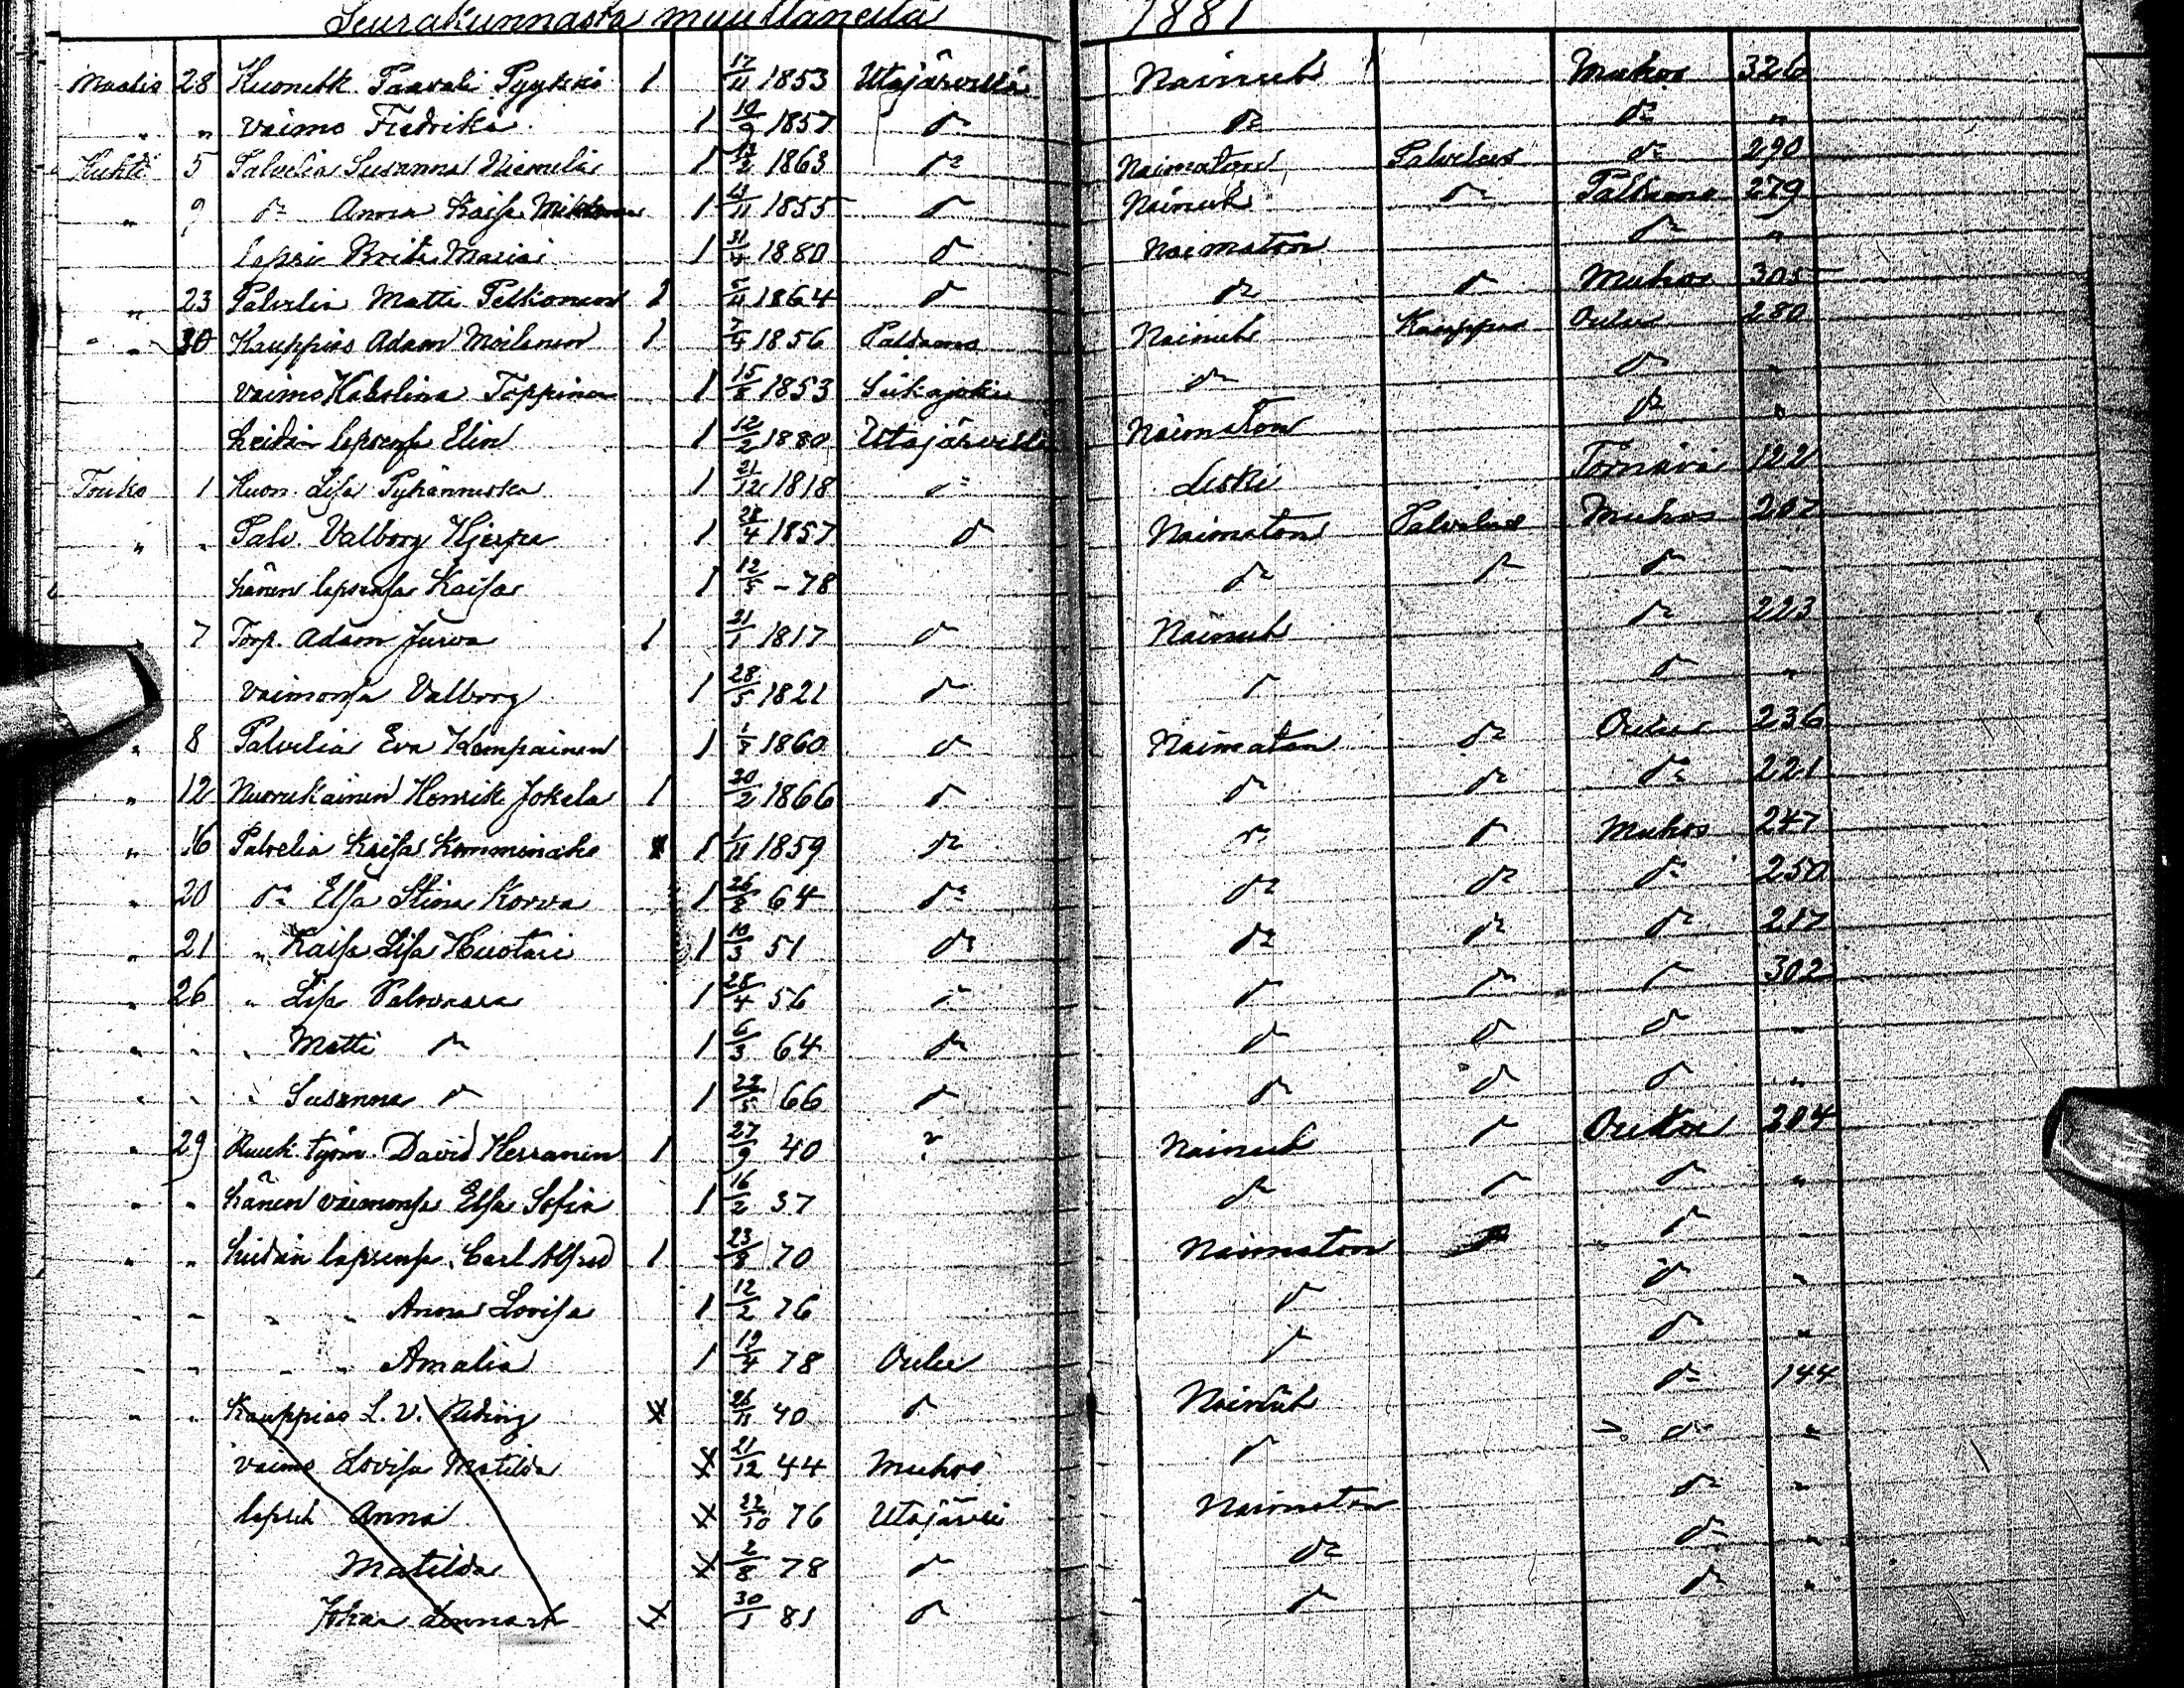 Seurakunnasta muuttaneita 1881
Maalis 28 Huonetk Paavali Pyykkö 1 17/11 1853 Utajärvellä Nainut Muhos 326
" " vaimo Fredrika 1 10/9 1857 do do do "
Huhti 5 Palvelia Susanna Niemelä 1 17/2 1863 do Naimaton Palvelus do 290
" 9 do Anna Kaisa 1 13/11 1855 do Nainut do Paldamo 279
lapsi Brita Maria 1 31/4 1880 do Naimaton do "
" 23 Palvelia Matti Pelkonen 1 5/11 1864 do do do Muhos 305
" 30 Kauppias Adam Moilanen 1 7/4 1856 Paldamo Nainut Kauppa Oulu 280
vaimo Karolina Toppinen 1 15/8 1853 Siikajoki do do "
heidän lapsensa Elin 1 12/2 1880 Utajärvellä Naimaton do "
Touko 1 Huon. Lisa Pyhänniska 1 21/12 1818 do Leski Tornävä 122
" " Palv. Valborg Hjerpe 1 28/4 1857 do Naimaton Palvelus Muhos 207
hänen lapsensa Kaisa 1 12/5 - 78 do do do
" 7 Torp. Adam Jurva 1 21/1 1817 do Nainut do 223
vaimonsa Valborg 1 28/5 1821 do do do "
" 8 Palvelia Eva Komppainen 1 1/7 1860 do Naimaton do Oulu 236
" 12 Nuorukainen Henrik Jokela 1 20/2 1866 do do do do 221
" 16 Palvelia Kaisa Komminaho 1 1/11 1859 do do do Muhos 247
" 20 do Elsa Stina Korva 1 26/8 64 do do do do 250
" 21 " Kaisa Lisa Huotari 1 10/3 51 do do do do 217
" 26 " Lisa Palovaara 1 28/4 56 do do do do 302
" " " Matti do 1 6/3 64 do do do do "
" " " Susanna do 1 22/5 66 do do do do "
" 29 Ruuk. työm. David Kerranen 1 27/9 40 ? Nainut do Oulu 204
" " hänen vaimonsa Elsa Sofia 1 16/2 37 do do do "
" " heidän lapsensa Carl Alfred 1 23/8 70 Naimaton do "
" " " " Anna Lovisa 1 12/2 76 do do "
" " " " Amalia 1 19/4 78 Oulu do do "
" " Kauppias L. V. 26/11 40 do Nainut do 144
vaimo Lovisa Matilda 21/12 44 Muhos do do "
lapset Anna 22/10 76 Utajärvi Naimaton do "
Matilda 2/8 78 do do do "
Johan Lennart 30/1 81 do do do "